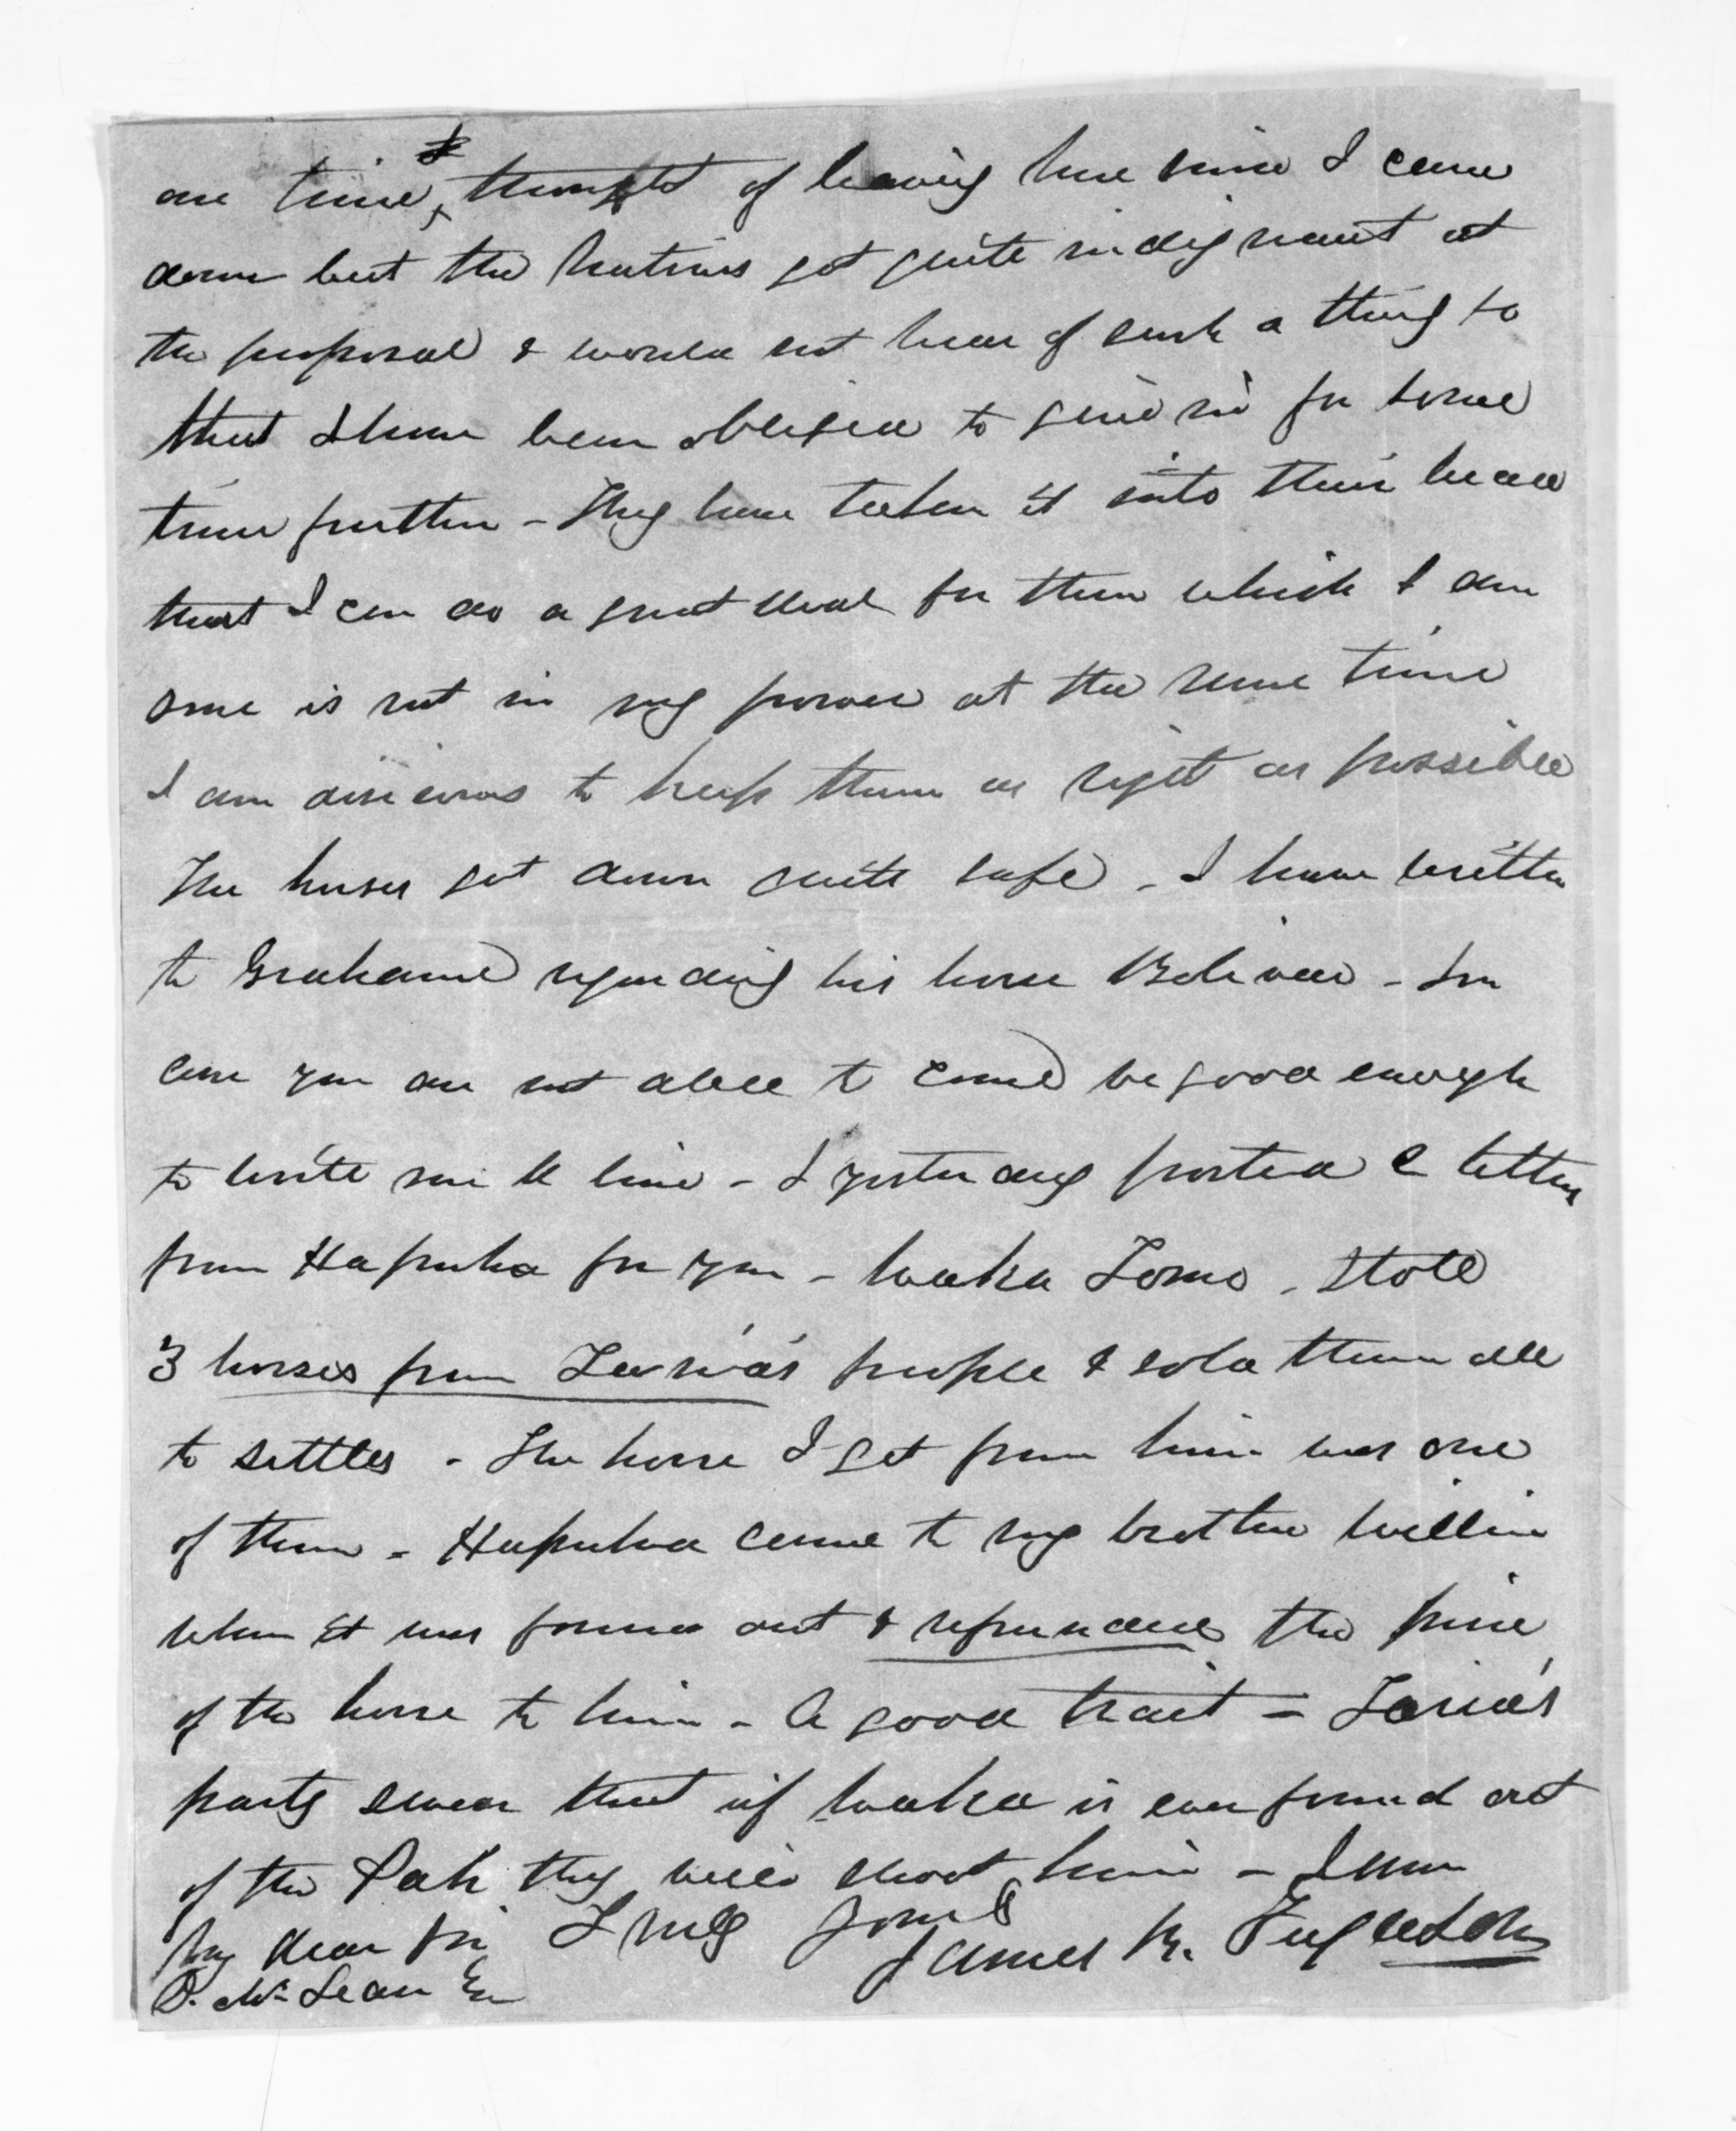 one time I thought of leaving here since I came
down but the Natives got quite indignant at
the proposal & would not hear of such a thing so
that I have been obliged to give in for some
time further - They have taken it into their head
that I can do a great deal for them which I am
sure is not in my power at the same time
I am anxious to keep them as right as possible
The horses got down quite safe - I have written
to Grahame regarding his horse Bolivar - In
case you are not able to come be good enough
to write me a line - I yesterday posted 2 letters
from Hapuka for you - Waka Tomo - stole
3 horses from Tariha's people & sold them all
to settlers - The horse I got from him was one
of them - Hapuka came to my brother William
when it was found out & refunded the price
of the horse to him - A good trait - Taria's
party swear that if Waka is ever found out
of the Pah they will shoot him - I am
My dear Sir Truly yours
James H. Fergusson
D. McLean Esq